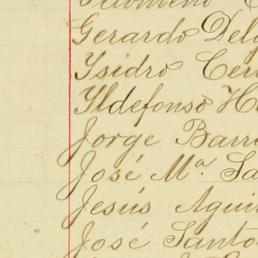 Gerardo Delg
Ysidro Cer
Yldefonso H
Jorge Barr
José Mª. Sa
Jesús Agui
José Santo